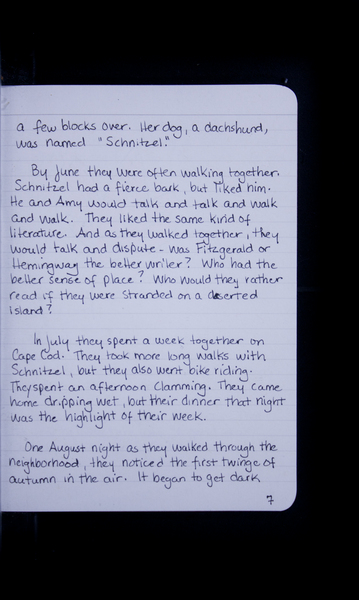 a few blocks over. Her dog, a dachshund,
was named "Schnitzel."
By June they were often walking together.
Schnitzel had a fierce bark, but liked him.
He and Amy would talk and talk and walk
and walk. They liked the same kind of
literature. And as they walked together, they
would talk and dispute - was Fitzgerald or
Hemingway the better writer? Who had the
better sense of place? Who would they rather
read if they were stranded on a deserted
island?
In July they spent a week together on
Cape Cod. They took more long walks with
Schnitzel, but they also went bike riding.
They spent an afternoon clamming. They came
home dripping wet, but their dinner that night
was the highlight of their week.
One August night as they walked through the
neighborhood, they noticed the first twinge of
autumn in the air. It began to get dark
7